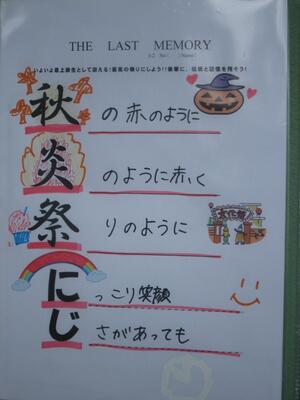 THE LAST MEMORY
3-2 No( ) Name( )
いよいよ最上級生として迎える!最高の祭りにしよう!!後輩に、伝統と記憶を残そう!
秋の赤のように
炎のように赤く
祭りのように
文化祭
にっこり笑顔
じさがあっても